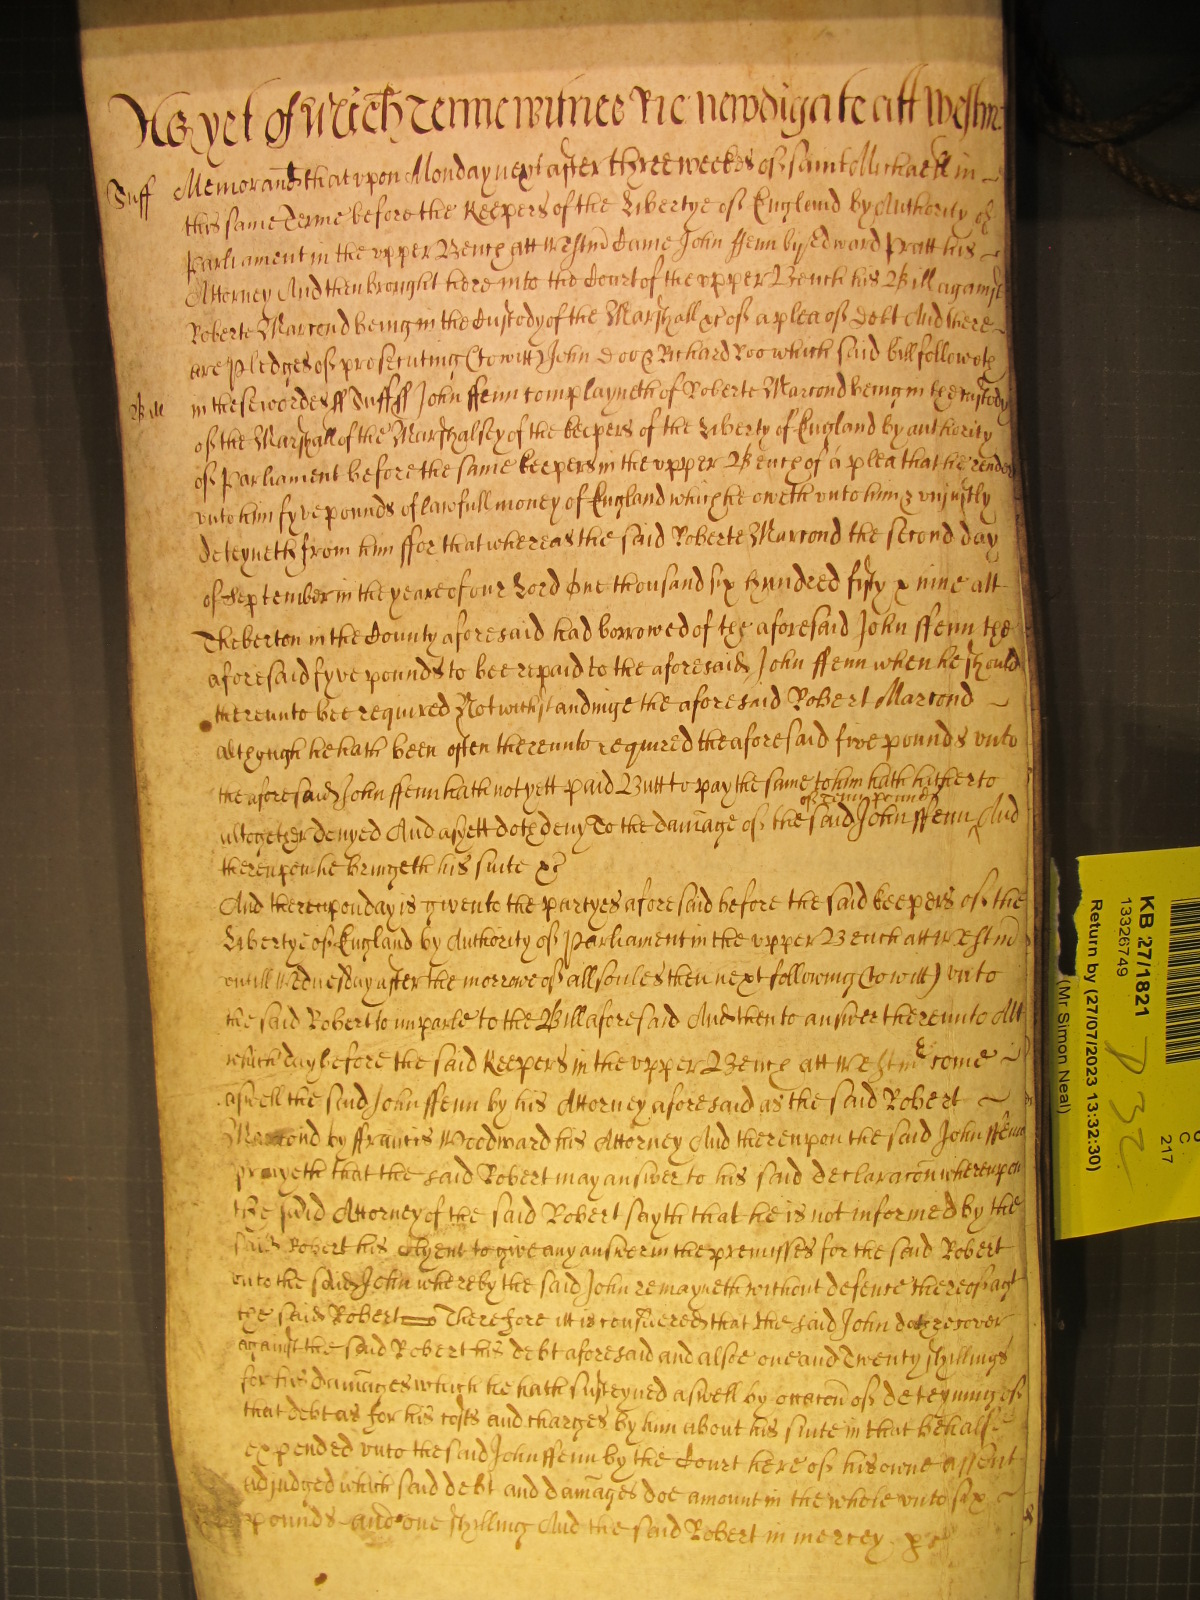 As yet of Mich Terme witnes Ric Newdigate att Westm
Suff Memorand that upon Monday next after three weekes of Saint Michaell in
this same Terme before the Keepers of the Libertye of England by Authority of
Parliament in the upper Bench att Westm Came John ffenn by Edward Pratt his
Attorney And then brought here into the Court of the upper Bench his Bill against
Roberte Marcond being in the Custody of the Marshall &c of a plea of Debt And there
are Pledges of prosecuting (to witt) John Doo & Richard Roo which said bill followeth
Bill in these wordes ff Suff ff John ffenn complayneth of Roberte Marcond being in the custody
of the Marshall of the Marshalsey of the keepers of the Liberty of England by authority
of Parliament before the same keepers in the upper Bench of a plea that he render
unto him fyve pounds of lawfull money of England which he oweth unto him & unjustly
deteyneth from him ffor that whereas the said Roberte Marcond the second day
of September in the yeare of our Lord One thousand six hundred fifty & nine att
Theberton in the County aforesaid had borrowed of the aforesaid John ffenn the
aforesaid fyve pounds to bee repaid to the aforesaid John ffenn when he should
thereunto bee required Notwithstandinge the aforesaid Robert Marcond
although he hath been often thereunto required the aforesaid five pounds unto
the aforesaid John ffenn hath not yett paid Butt to pay the same to him hath hitherto
of tenn pounds
altogether denyed And as yett doth deny To the damage of the said John ffenn And
thereupon he bringeth his suite &c
And thereupon day is given to the partyes aforesaid before the said keepers of the
Libertye of England by Authority of Parliament in the upper Bench att Westm
untill Wednesday after the morrowe of all soules then next following (to witt) unto
the said Robert to imparle to the Bill aforesaid And then to answer thereunto Att
which day before the said Keepers in the upper Bench att Westm come
aswell the said John ffenn by his Attorney aforesaid as the said Robert
Marcond by ffrancis Woodward his Attorney And thereupon the said John ffenn
prayeth that the said Robert may answer to his said declaracon whereupon
the said Attorney of the said Robert sayth that he is not informed by the
said Robert his Clyent to give any answer in the premisses for the said Robert
unto the said John whereby the said John remayneth without defence thereof agt
the said Robert Therefore itt is considered that the said John doth recover
against the said Robert his debt aforesaid and alsoe one and Twenty shillings
for his damages which he hath susteyned aswell by occacon of deteyning of
that debt as for his costs and charges by him about his suite in that behalfe
expended unto the said John ffenn by the Court here of his owne assent
adjudged which said debt and damages doe amount in the whole unto six
pounds and one shylling And the said Robert in mercey &c
KB 27/1821
13326749
Return by (27/07/2023 13:32:30)
(Mr Simon Neal)
C
217